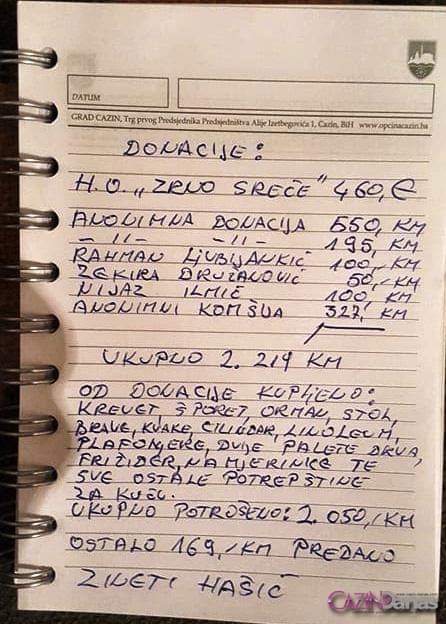 DATUM
GRAD CAZIN, Trg prvog Predsjednika Predsjedništva Alije Izetbegovića 1, Cazin, BiH www.opcinacazin.ba
DONACIJE:
H.O. „ZRNO SREĆE" 460,€
ANONIMNA DONACIJA 550,KM
-11- -11- 195,KM
RAHMAN LJUBIJANKIĆ 100,-KM
ZEKIRA DRUŽANOVIĆ 50,-KM
NIJAZ ILMIĆ 100,KM
ANONIMNI KOMŠIJA 327,KM
UKUPNO 2.219 KM
OD DONACIJE KUPLJENO:
KREVET, ŠPORET, ORMAN, STOL,
BRAVE, KVAKE, CILINDAR, LINOLEUM,
PLAFONJERE, DVIJE PALETE DRVA,
FRIŽIDER, NAMJERINICE TE
SVE OSTALE POTREPŠTINE
ZA KUĆU.
UKUPNO POTROŠENO: 2.050,/KM
OSTALO 169,/KM PREDANO
ZINETI HAŠIĆ
CAZINDanas